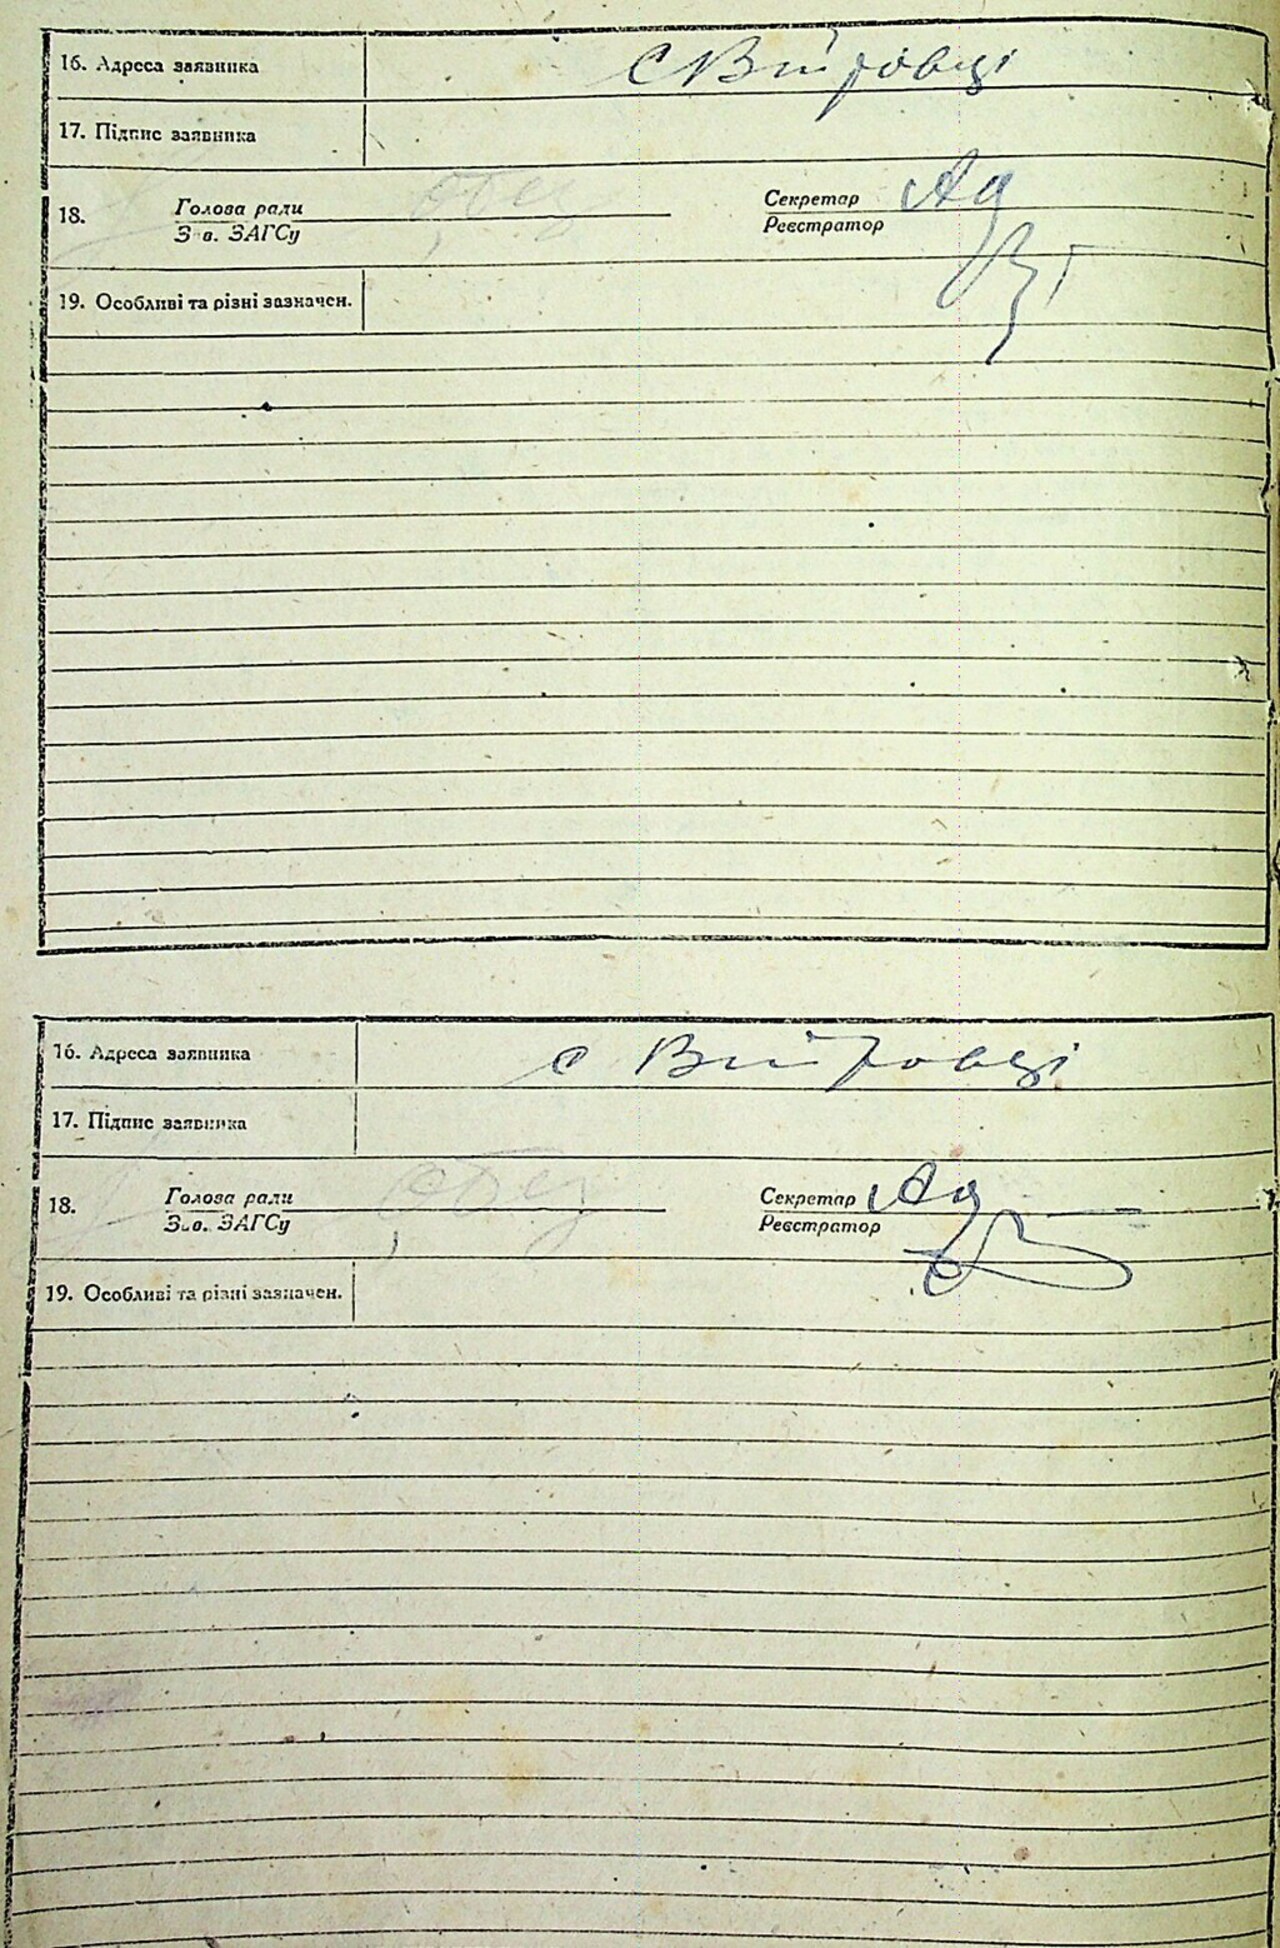 16. Адреса заявника с Вітровці
17. Підпис заявника
18. Голова ради Секретар
З-в. ЗАГСу Реєстратор
19. Особливі та різні зазначен.
16. Адреса заявника с Вітровці
17. Підпис заявника
18. Голова ради Секретар
З-в. ЗАГСу Реєстратор
19. Особливі та різні зазначен.